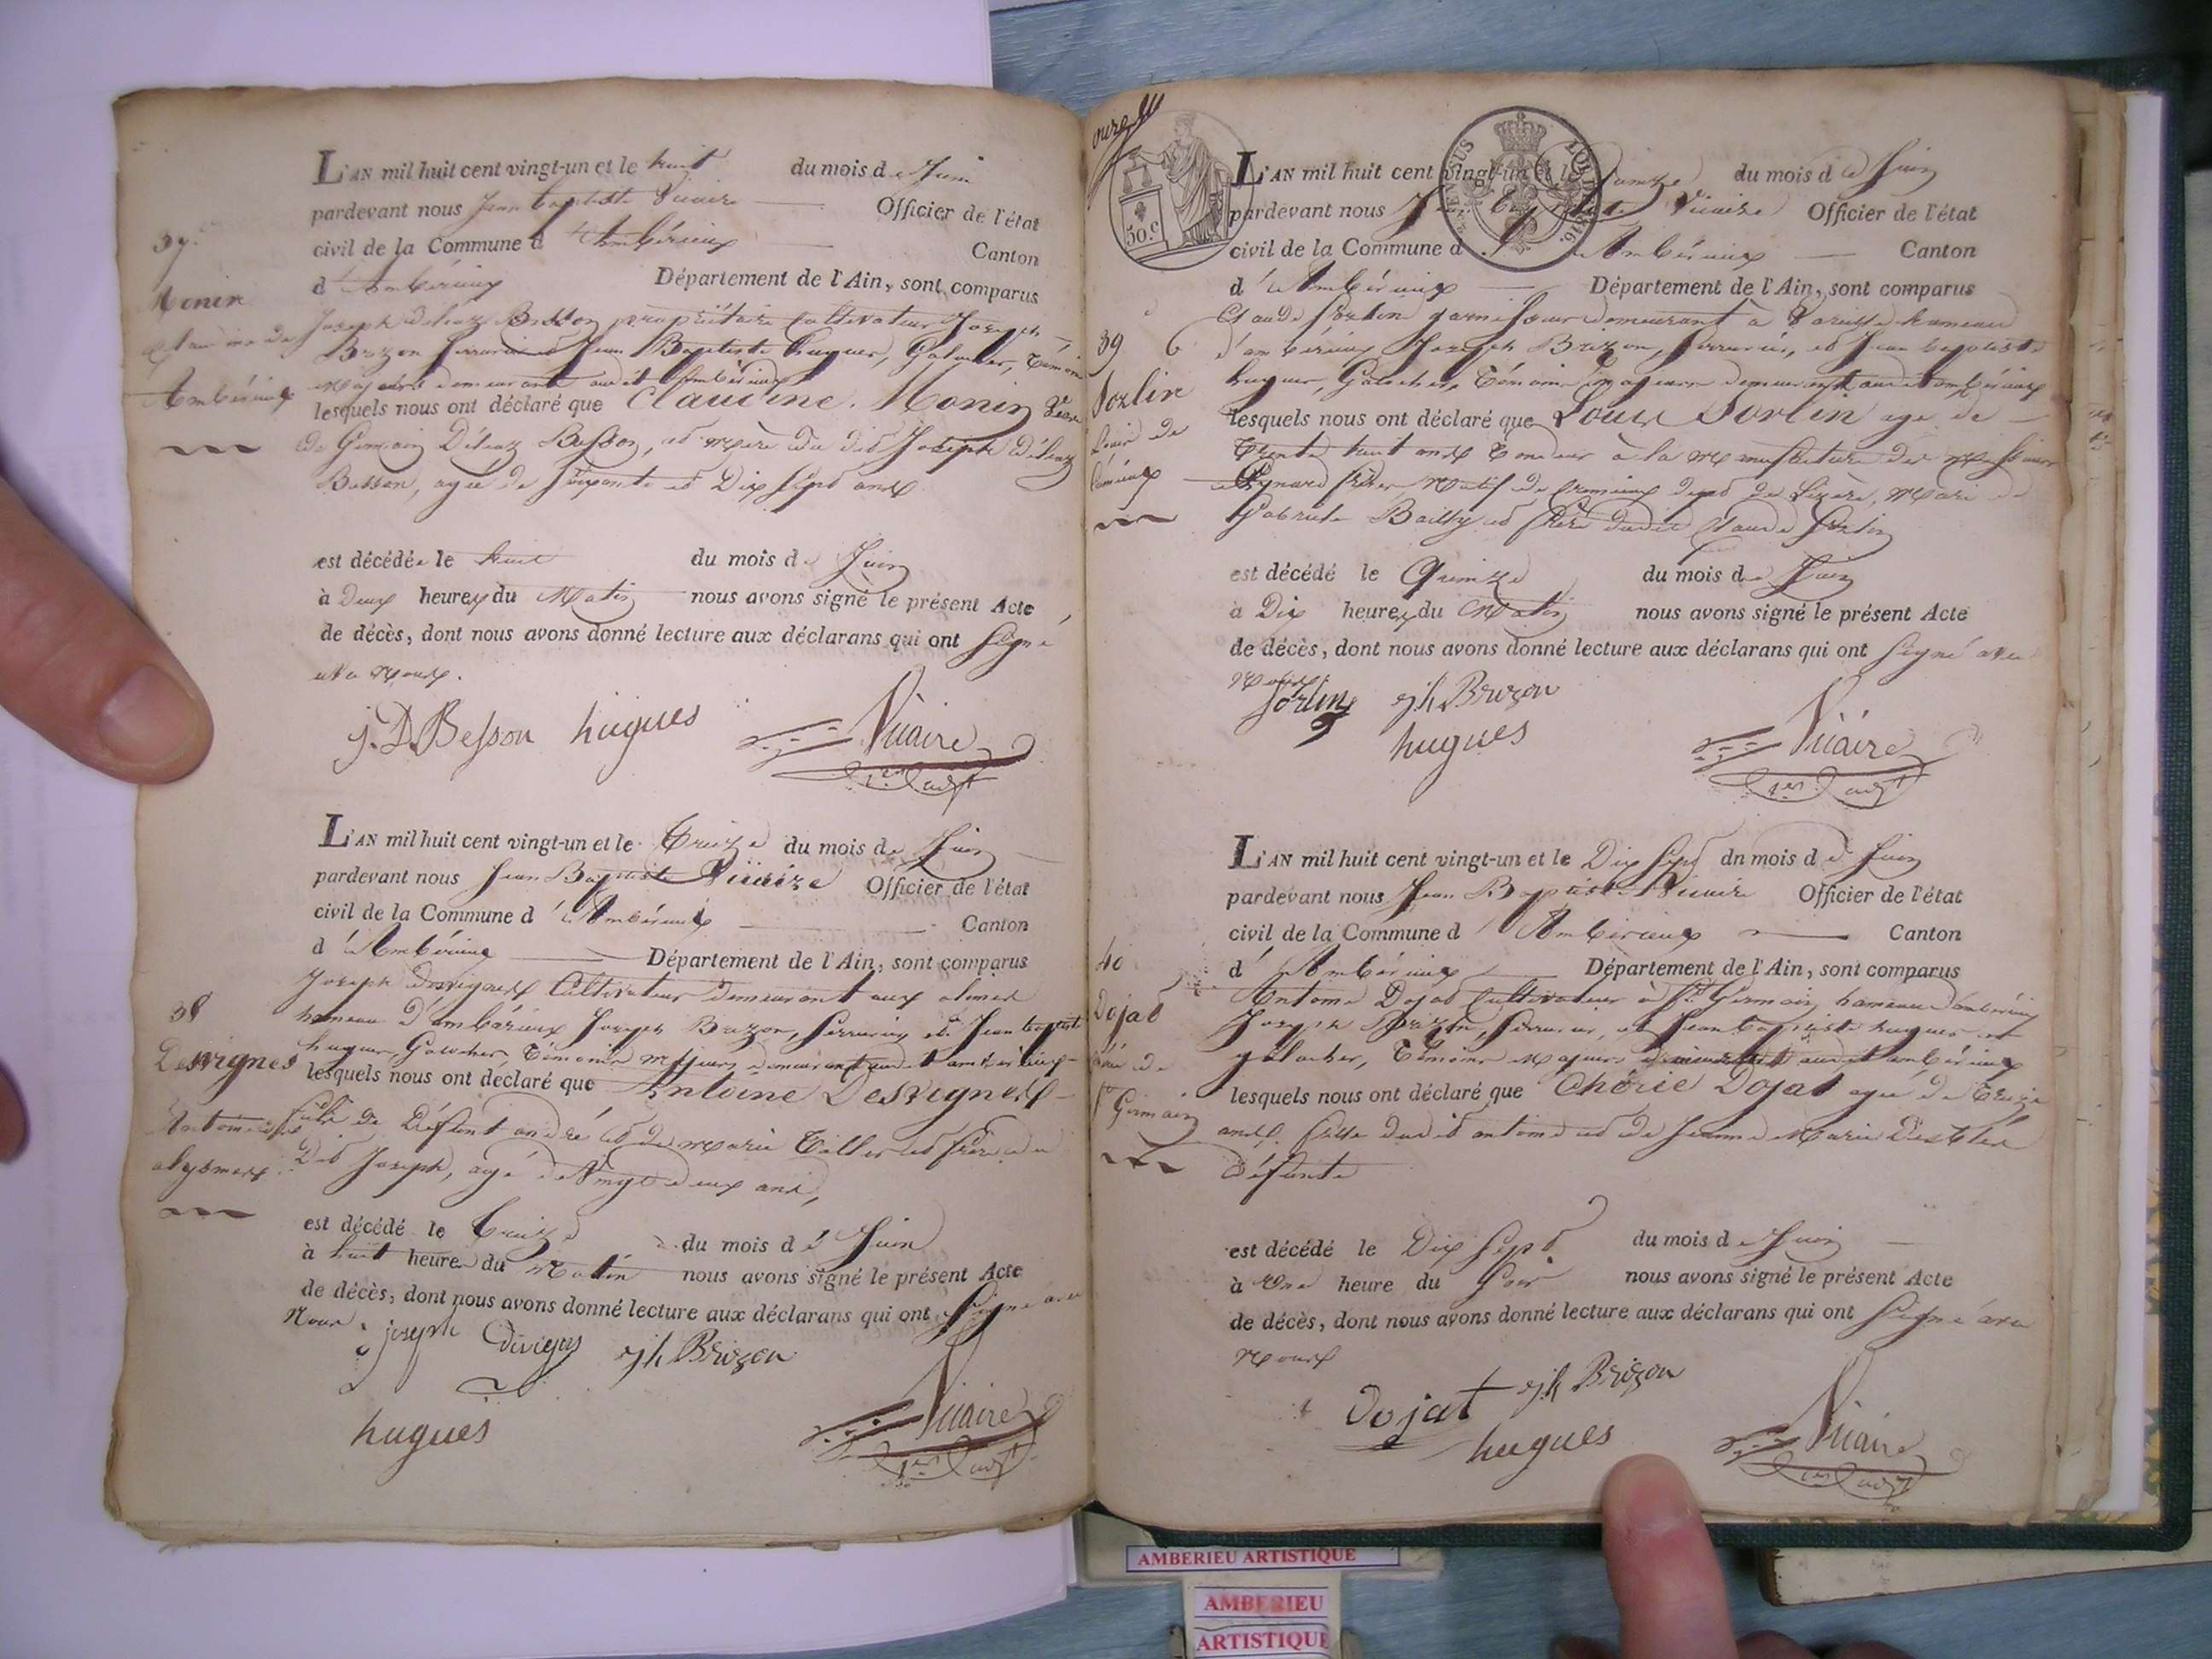 37.
Monin
Claudine de
Ambérieux
L'AN mil huit cent vingt-un et le huit du mois de Juin
pardevant nous Jean Baptiste Vicaire Officier de l'état
civil de la Commune d'Ambérieux Canton
d'Ambérieux Département de l'Ain, sont comparus
Joseph Besson propriétaire Cultivateur Joseph
Brizon Serrurier et Jean Baptiste hugues, Galocher, Témoins
majeurs demeurant audit Ambérieux
lesquels nous ont déclaré que Claudine Monin Veuve
de Germain Besson, et mère du dit Joseph
Besson, agée de soixante et Dix Sept ans
est décédée le huit du mois de Juin
à Deux heures du Matin nous avons signé le présent Acte
de décès, dont nous avons donné lecture aux déclarans qui ont Signé
avec nous.
j. D. Besson hugues Vicaire
1er adjt
38
Desvignes
Antoine
L'AN mil huit cent vingt-un et le Treize du mois de Juin
pardevant nous Jean Baptiste Vicaire Officier de l'état
civil de la Commune d'Ambérieux Canton
d'Ambérieux Département de l'Ain, sont comparus
Joseph Desvignes Cultivateur demeurant aux
hameau d'ambérieux Joseph Brizon, Serrurier et Jean baptiste
hugues, Galocher, Témoins majeurs demeurant audit ambérieux
lesquels nous ont déclaré que Antoine Desvignes
fils de Défunt andré et de Marie et frère du
Dit Joseph, agé de Vingt deux ans,
est décédé le Treize du mois de Juin
à huit heures du Matin nous avons signé le présent Acte
de décès, dont nous avons donné lecture aux déclarans qui ont Signé avec
Nous.
joseph jh Brizon
hugues Vicaire
1er adjt
onze
50.c
39
Sorlin
Louis de
L'AN mil huit cent vingt-un et le Quinze du mois de Juin
pardevant nous Jean Baptiste Vicaire Officier de l'état
civil de la Commune d'Ambérieux Canton
d'Ambérieux Département de l'Ain, sont comparus
Claude Sorlin demeurant à Vareille hameau
d'ambérieux Joseph Brizon, Serrurier, et Jean baptiste
hugues, Galocher, Témoins majeurs demeurant audit ambérieux
lesquels nous ont déclaré que Louis Sorlin agé de
Trente huit ans Tondeur à la Manufacture des Messieurs
frères Natif de Cremieux dept de Lizère, Mari de
Gabriele Bailly et frère dudit Claude Sorlin
est décédé le Quinze du mois de Juin
à Dix heures du Matin nous avons signé le présent Acte
de décès, dont nous avons donné lecture aux déclarans qui ont Signé avec
Nous.
Sorlin jh Brizon
hugues Vicaire
1er adjt
40
Dojat
St Germain
L'AN mil huit cent vingt-un et le Dix Sept dn mois de Juin
pardevant nous Jean Baptiste Vicaire Officier de l'état
civil de la Commune d'Ambérieux Canton
d'Ambérieux Département de l'Ain, sont comparus
Antoine Dojat Cultivateur à St Germain hameau d'ambérieux
Joseph Brizon, Serrurier, et Jean baptiste hugues
galocher, Témoins Majeurs demeurant audit ambérieux
lesquels nous ont déclaré que Chérie Dojat agée de Treize
ans fille dudit antoine et de Jeanne Marie
défunte
est décédé le Dix Sept du mois de Juin
à Une heure du Soir nous avons signé le présent Acte
de décès, dont nous avons donné lecture aux déclarans qui ont Signé avec
Nous
Dojat jh Brizon
hugues Vicaire
1er adjt
AMBERIEU ARTISTIQUE
AMBERIEU
ARTISTIQUE